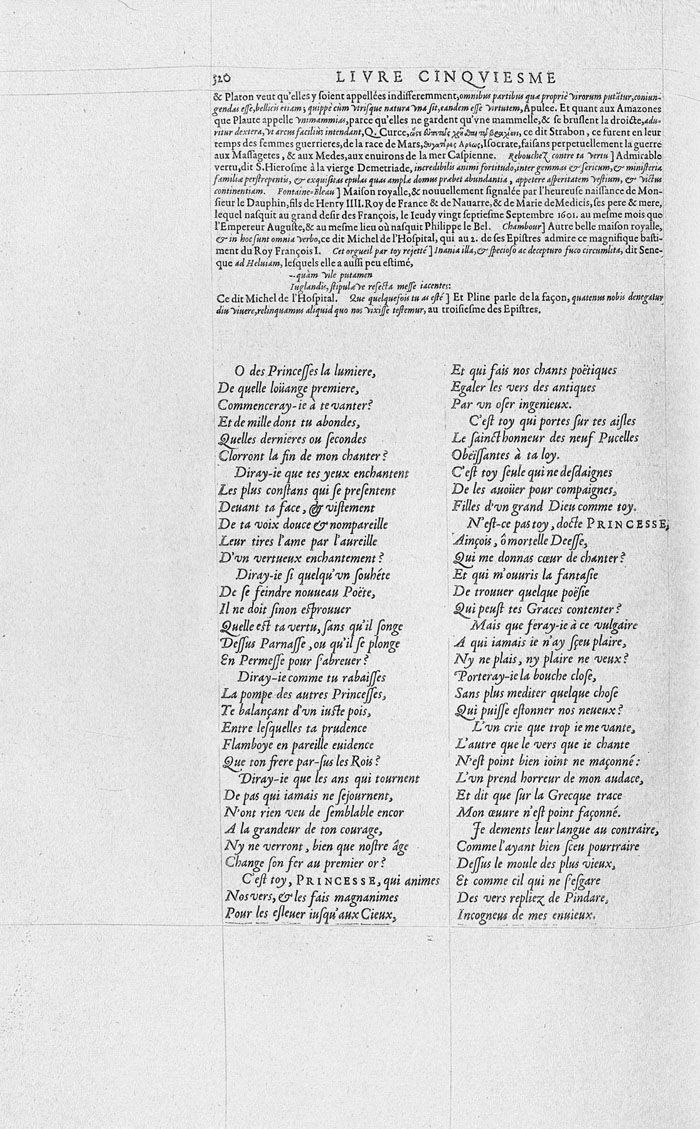 520 LIVRE CINQVIESME
& Platon veut qu'elles y soient appellées indifferemment, omnibus partibus quæ propriè virorum putãtur, coniun-
gendas esse, bellicis etiam; quippe cùm vtrisque natura vna sit, eandem esse virtutem, Apulee. Et quant aux Amazones
que Plaute appelle vnimammias, parce qu'elles ne gardent qu'vne mammelle, & se bruslent la droicte, adu-
ritur dextera, vt arcus faciliùs intendant, Q. Curce, ce dit Strabon, ce furent en leur
temps des femmes guerrieres, de la race de Mars, Isocrate, faisans perpetuellement la guerre
aux Massagetes, & aux Medes, aux enuirons de la mer Caspienne. Rebouchez contre ta vertu ] Admirable
vertu, dit S. Hierosme à la vierge Demetriade, incredibilis animi fortitudo, inter gemmas & sericum, & ministeria
familiæ perstrepentis, & exquisitas epulas quas amplæ domus præbet abundantia, appetere asperitatem vestium, & victus
continentiam. Fontaine-bleau ] Maison royalle, & nouuellement signalée par l'heureuse naissance de Mon-
sieur le Dauphin, fils de Henry IIII. Roy de France & de Nauarre, & de Marie de Medicis, ses pere & mere,
lequel nasquit au grand desir des François, le Ieudy vingt septiesme Septembre 1601. au mesme mois que
l'Empereur Auguste, & au mesme lieu où nasquit Philippe le Bel. Chambour ] Autre belle maison royalle,
& in hoc sunt omnia verbo, ce dit Michel de l'Hospital, qui au 2. de ses Epistres admire ce magnifique basti-
ment du Roy François I. Cet orgueil par toy rejetté ] Inania illa, & specioso ac decepturo fuco circumlita, dit Sene-
que ad Heluiam, lesquels elle a aussi peu estimé,
--quàm vile putamen
Iuglandis, stipulæve resecta messe iacentes:
Ce dit Michel de l'Hospital. Que quelquefois tu as esté ] Et Pline parle de la façon, quatenus nobis denegatur
diu viuere, relinquamus aliquid quo nos vixisse testemur, au troisiesme des Epistres.
O des Princesses la lumiere,
De quelle loüange premiere,
Commenceray-ie à te vanter?
Et de mille dont tu abondes,
Quelles dernieres ou secondes
Clorront la fin de mon chanter?
Diray-ie que tes yeux enchantent
Les plus constans qui se presentent
Deuant ta face, & vistement
De ta voix douce & nompareille
Leur tires l'ame par l'aureille
D'vn vertueux enchantement?
Diray-ie si quelqu'vn souhéte
De se feindre nouueau Poëte,
Il ne doit sinon esprouuer
Quelle est ta vertu, sans qu'il songe
Dessus Parnasse, ou qu'il se plonge
En Permesse pour s'abreuer?
Diray-ie comme tu rabaisses
La pompe des autres Princesses,
Te balançant d'vn iuste pois,
Entre lesquelles ta prudence
Flamboye en pareille euidence
Que ton frere par-sus les Rois?
Diray-ie que les ans qui tournent
De pas qui iamais ne sejournent,
N'ont rien veu de semblable encor
A la grandeur de ton courage,
Ny ne verront, bien que nostre âge
Change son fer au premier or?
C'est toy, PRINCESSE, qui animes
Nos vers, & les fais magnanimes
Pour les esleuer iusqu'aux Cieux,
Et qui fais nos chants poëtiques
Egaler les vers des antiques
Par vn oser ingenieux.
C'est toy qui portes sur tes aisles
Le sainct honneur des neuf Pucelles
Obeïssantes à ta loy.
C'est toy seule qui ne desdaignes
De les auoüer pour compaignes,
Filles d'vn grand Dieu comme toy.
N'est-ce pas toy, docte PRINCESSE,
Ainçois, ô mortelle Deesse,
Qui me donnas cœur de chanter?
Et qui m'ouuris la fantasie
De trouuer quelque poësie
Qui peust tes Graces contenter?
Mais que feray-ie à ce vulgaire
A qui iamais ie n'ay sçeu plaire,
Ny ne plais, ny plaire ne veux?
Porteray-ie la bouche close,
Sans plus mediter quelque chose
Qui puisse estonner nos neueux?
L'vn crie que trop ie me vante,
L'autre que le vers que ie chante
N'est point bien ioint ne maçonné:
L'vn prend horreur de mon audace,
Et dit que sur la Grecque trace
Mon œuure n'est point façonné.
Je dements leur langue au contraire,
Comme l'ayant bien sceu pourtraire
Dessus le moule des plus vieux,
Et comme cil qui ne s'esgare
Des vers repliez de Pindare,
Incogneus de mes enuieux.